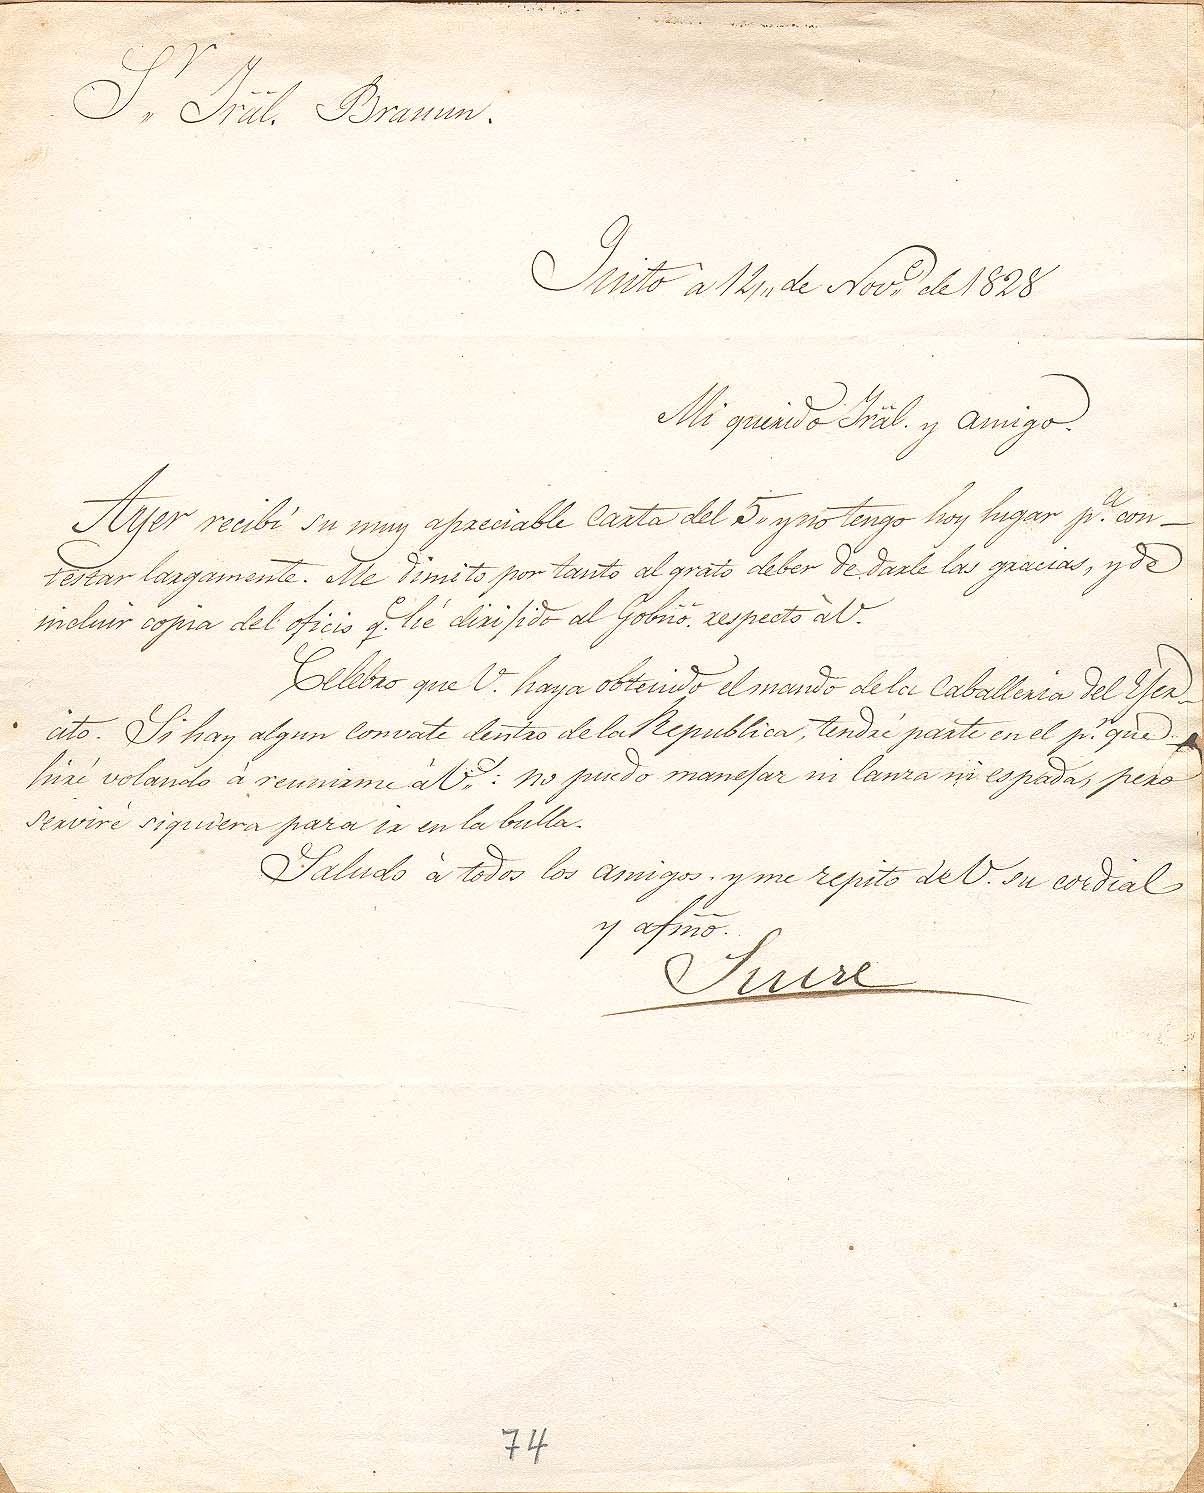 S.r Gräl. Braunn.
Quito à 12,, de Nov.e de 1828
Mi querido Gräl. y amigo.
Ayer recibí su muy apreciable carta del 5,, y no tengo hoy lugar p.a con-
testar largamente. Me dimito por tanto al grato deber de darle las gracias, y de
incluir copia del oficio q.e hé dirijido al Gobñô. respecto à V.
Celebro que V. haya obtenido el mando de la caballeria del Ejer-
cito. Si hay algun convate dentro de la Republica, tendré parte en el p.r que
hiré volando à reunirme à V.d: no puedo manejar ni lanza ni espada, pero
serviré siquiera para ir en la bulla.
Saludo à todos los amigos. y me repito de V. su cordial
y afmõ.
Sucre
74